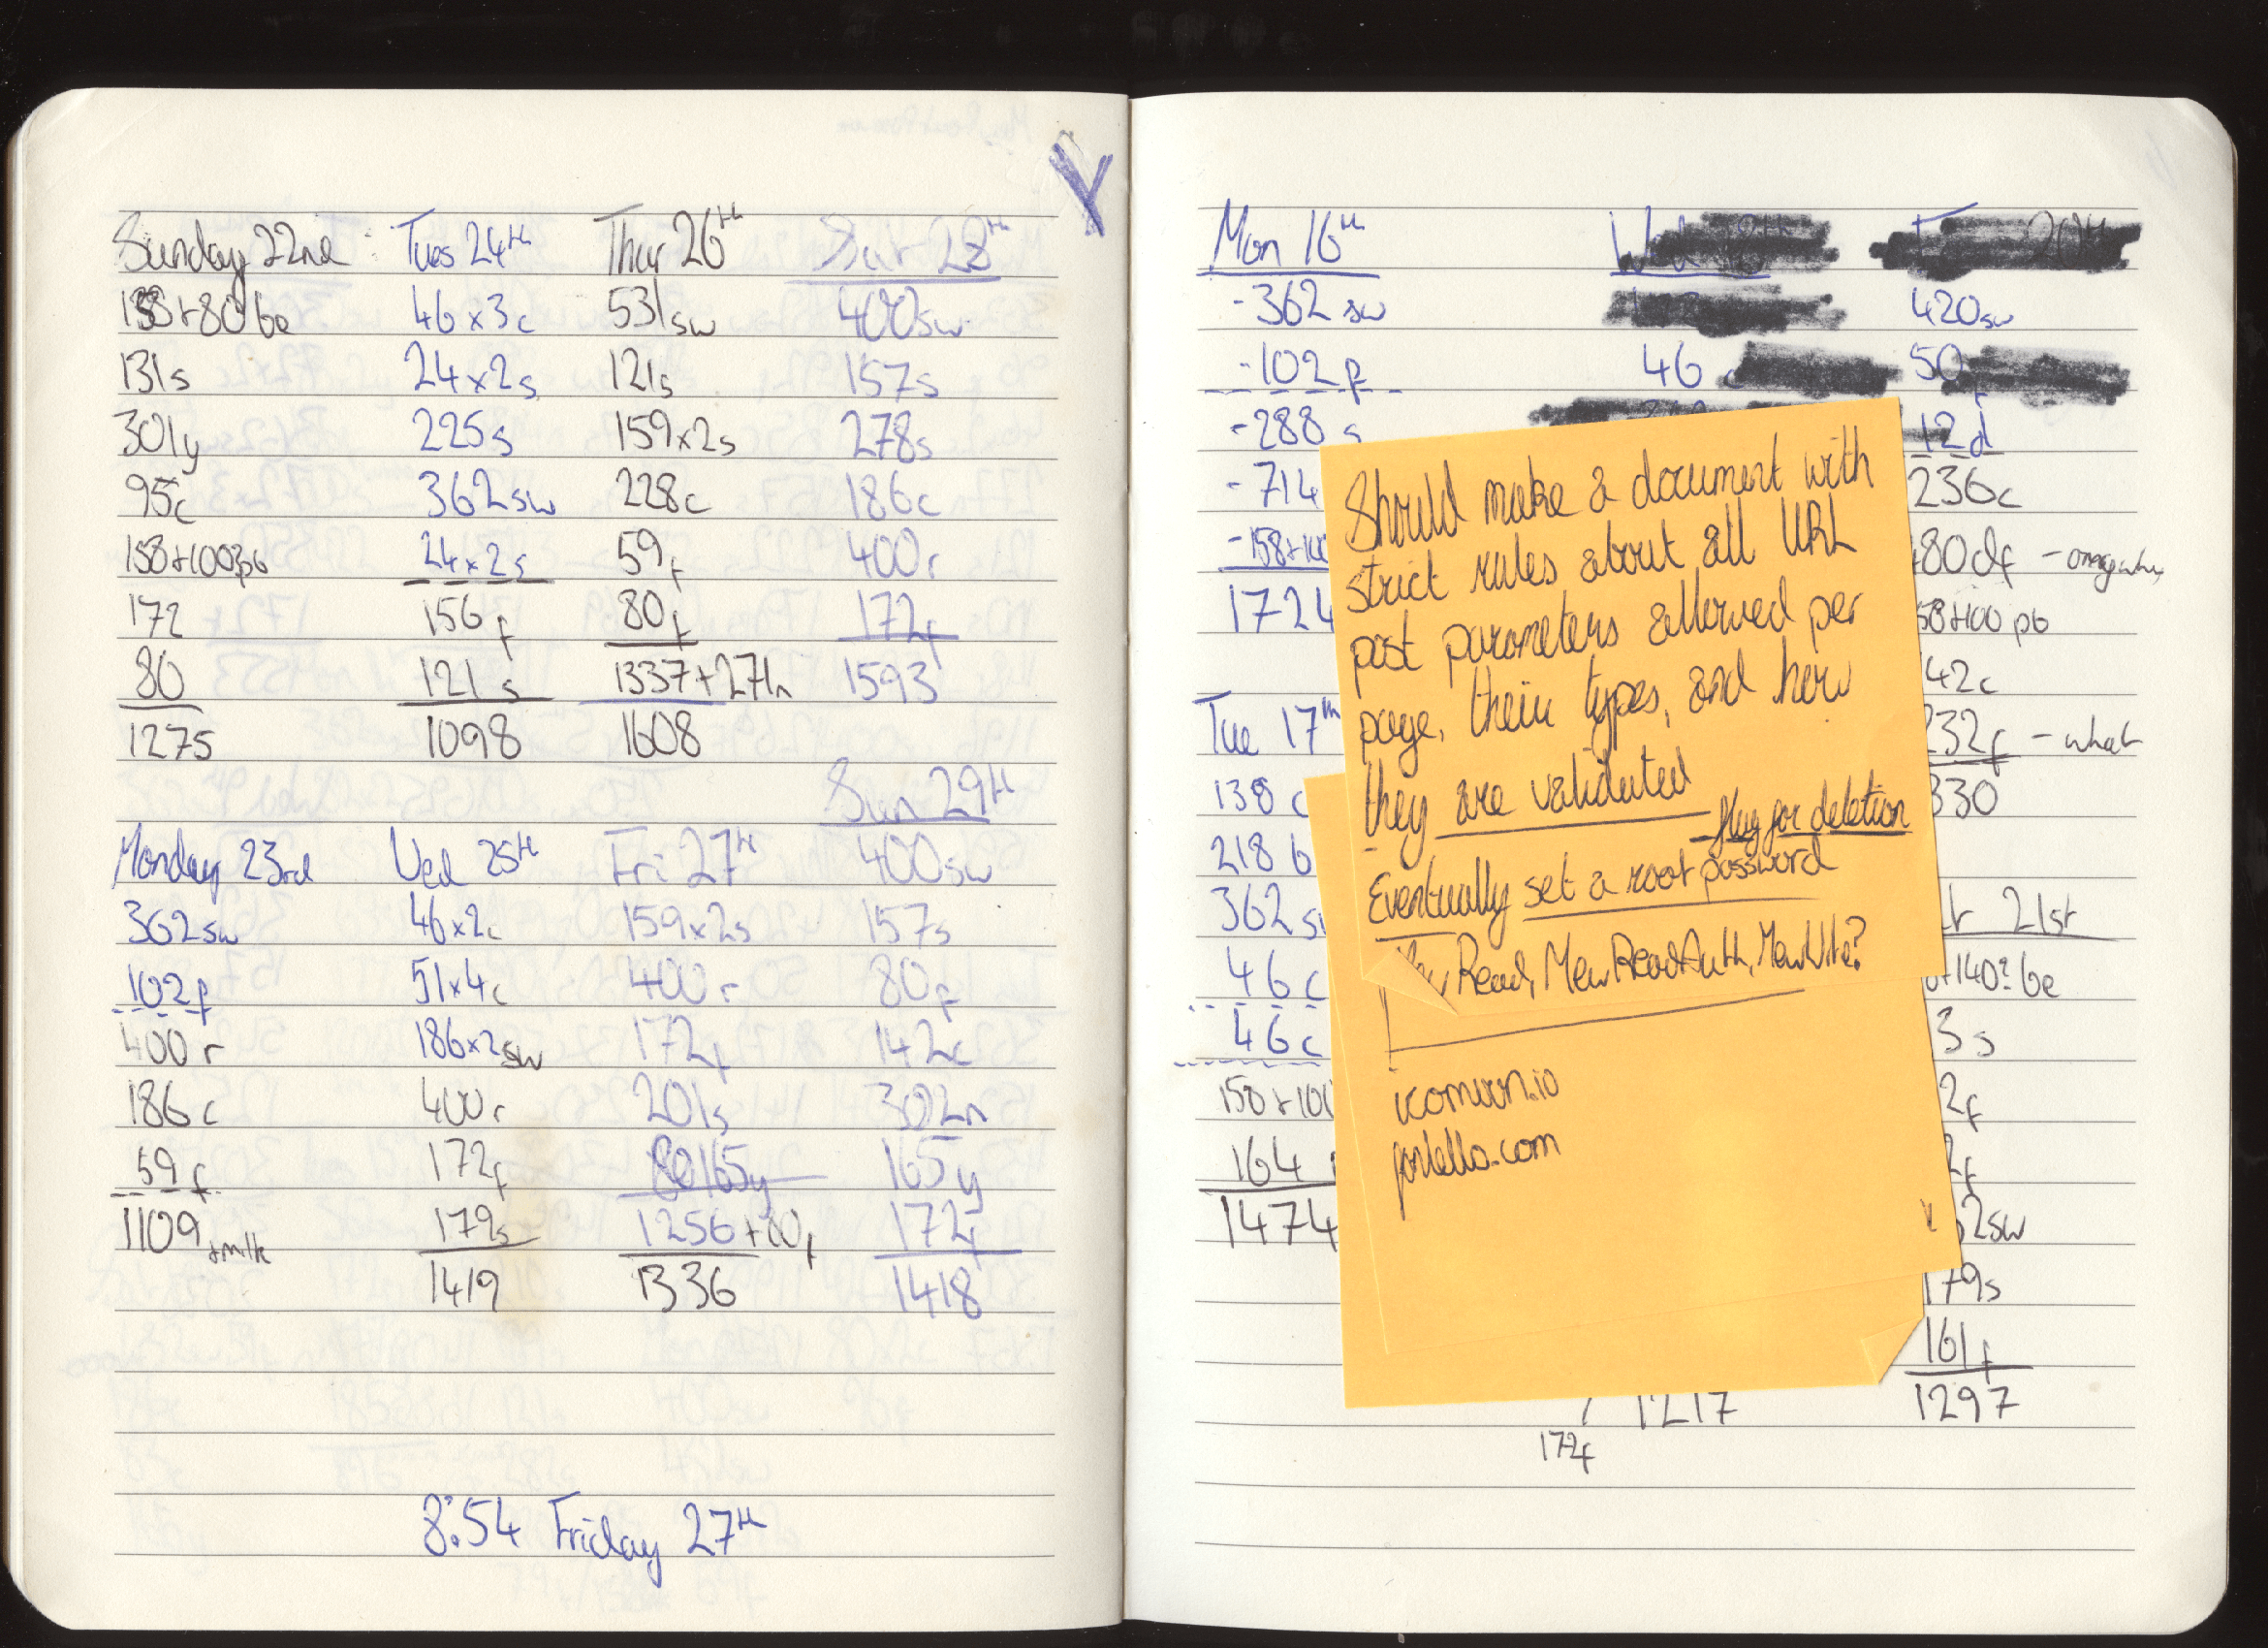 Sunday 22nd
158+80be
131s
301y
95c
158+100pb
172
80
1275
Monday 23rd
362sw
102f
400r
186c
59f
1109 +milk
Tues 24th
46x3c
24x2s
225s
362sw
24x2s
156f
121s
1098
Wed 25th
46x2c
51x4c
186x2sw
400r
172f
179s
1419
Thur 26th
531sw
121s
159x2s
228c
59f
80f
1337+271n
1608
Fri 27th
159x2s
400r
172f
201s
165y
1256+80f
1336
Sat 28th
400sw
157s
278s
186c
400r
172f
1593
Sun 29th
400sw
157s
80f
142c
302n
165y
172f
1418
8:54 Friday 27th
Y
Mon 16th
-362sw
-102f
-288s
-714
-158+100
1724
Tue 17th
138c
218b
362s
46c
46c
158+100
164
1474
46
1217
172f
20th
420sw
50
12d
236c
80df -
58+100pb
42c
232f - what
330
21st
+140? be
3s
2f
2f
2sw
179s
161f
1297
Should make a document with
strict rules about all URL
post parameters allowed per
page, their types, and how
they are validated
- flag for deletion
Eventually set a root password
Read, MewReadAuth, MewWrite?
icomoon.io
fontello.com